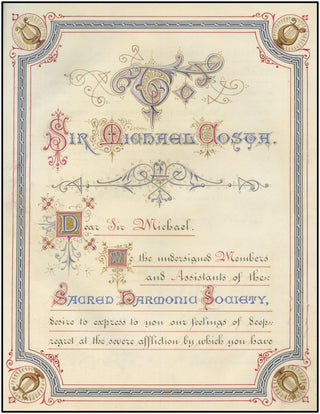 To
Sir Michael Costa.
Dear Sir Michael.
We the undersigned Members
and Assistants of the
Sacred Harmonic Society,
desire to express to you our feelings of deep
regret at the severe affliction by which you have